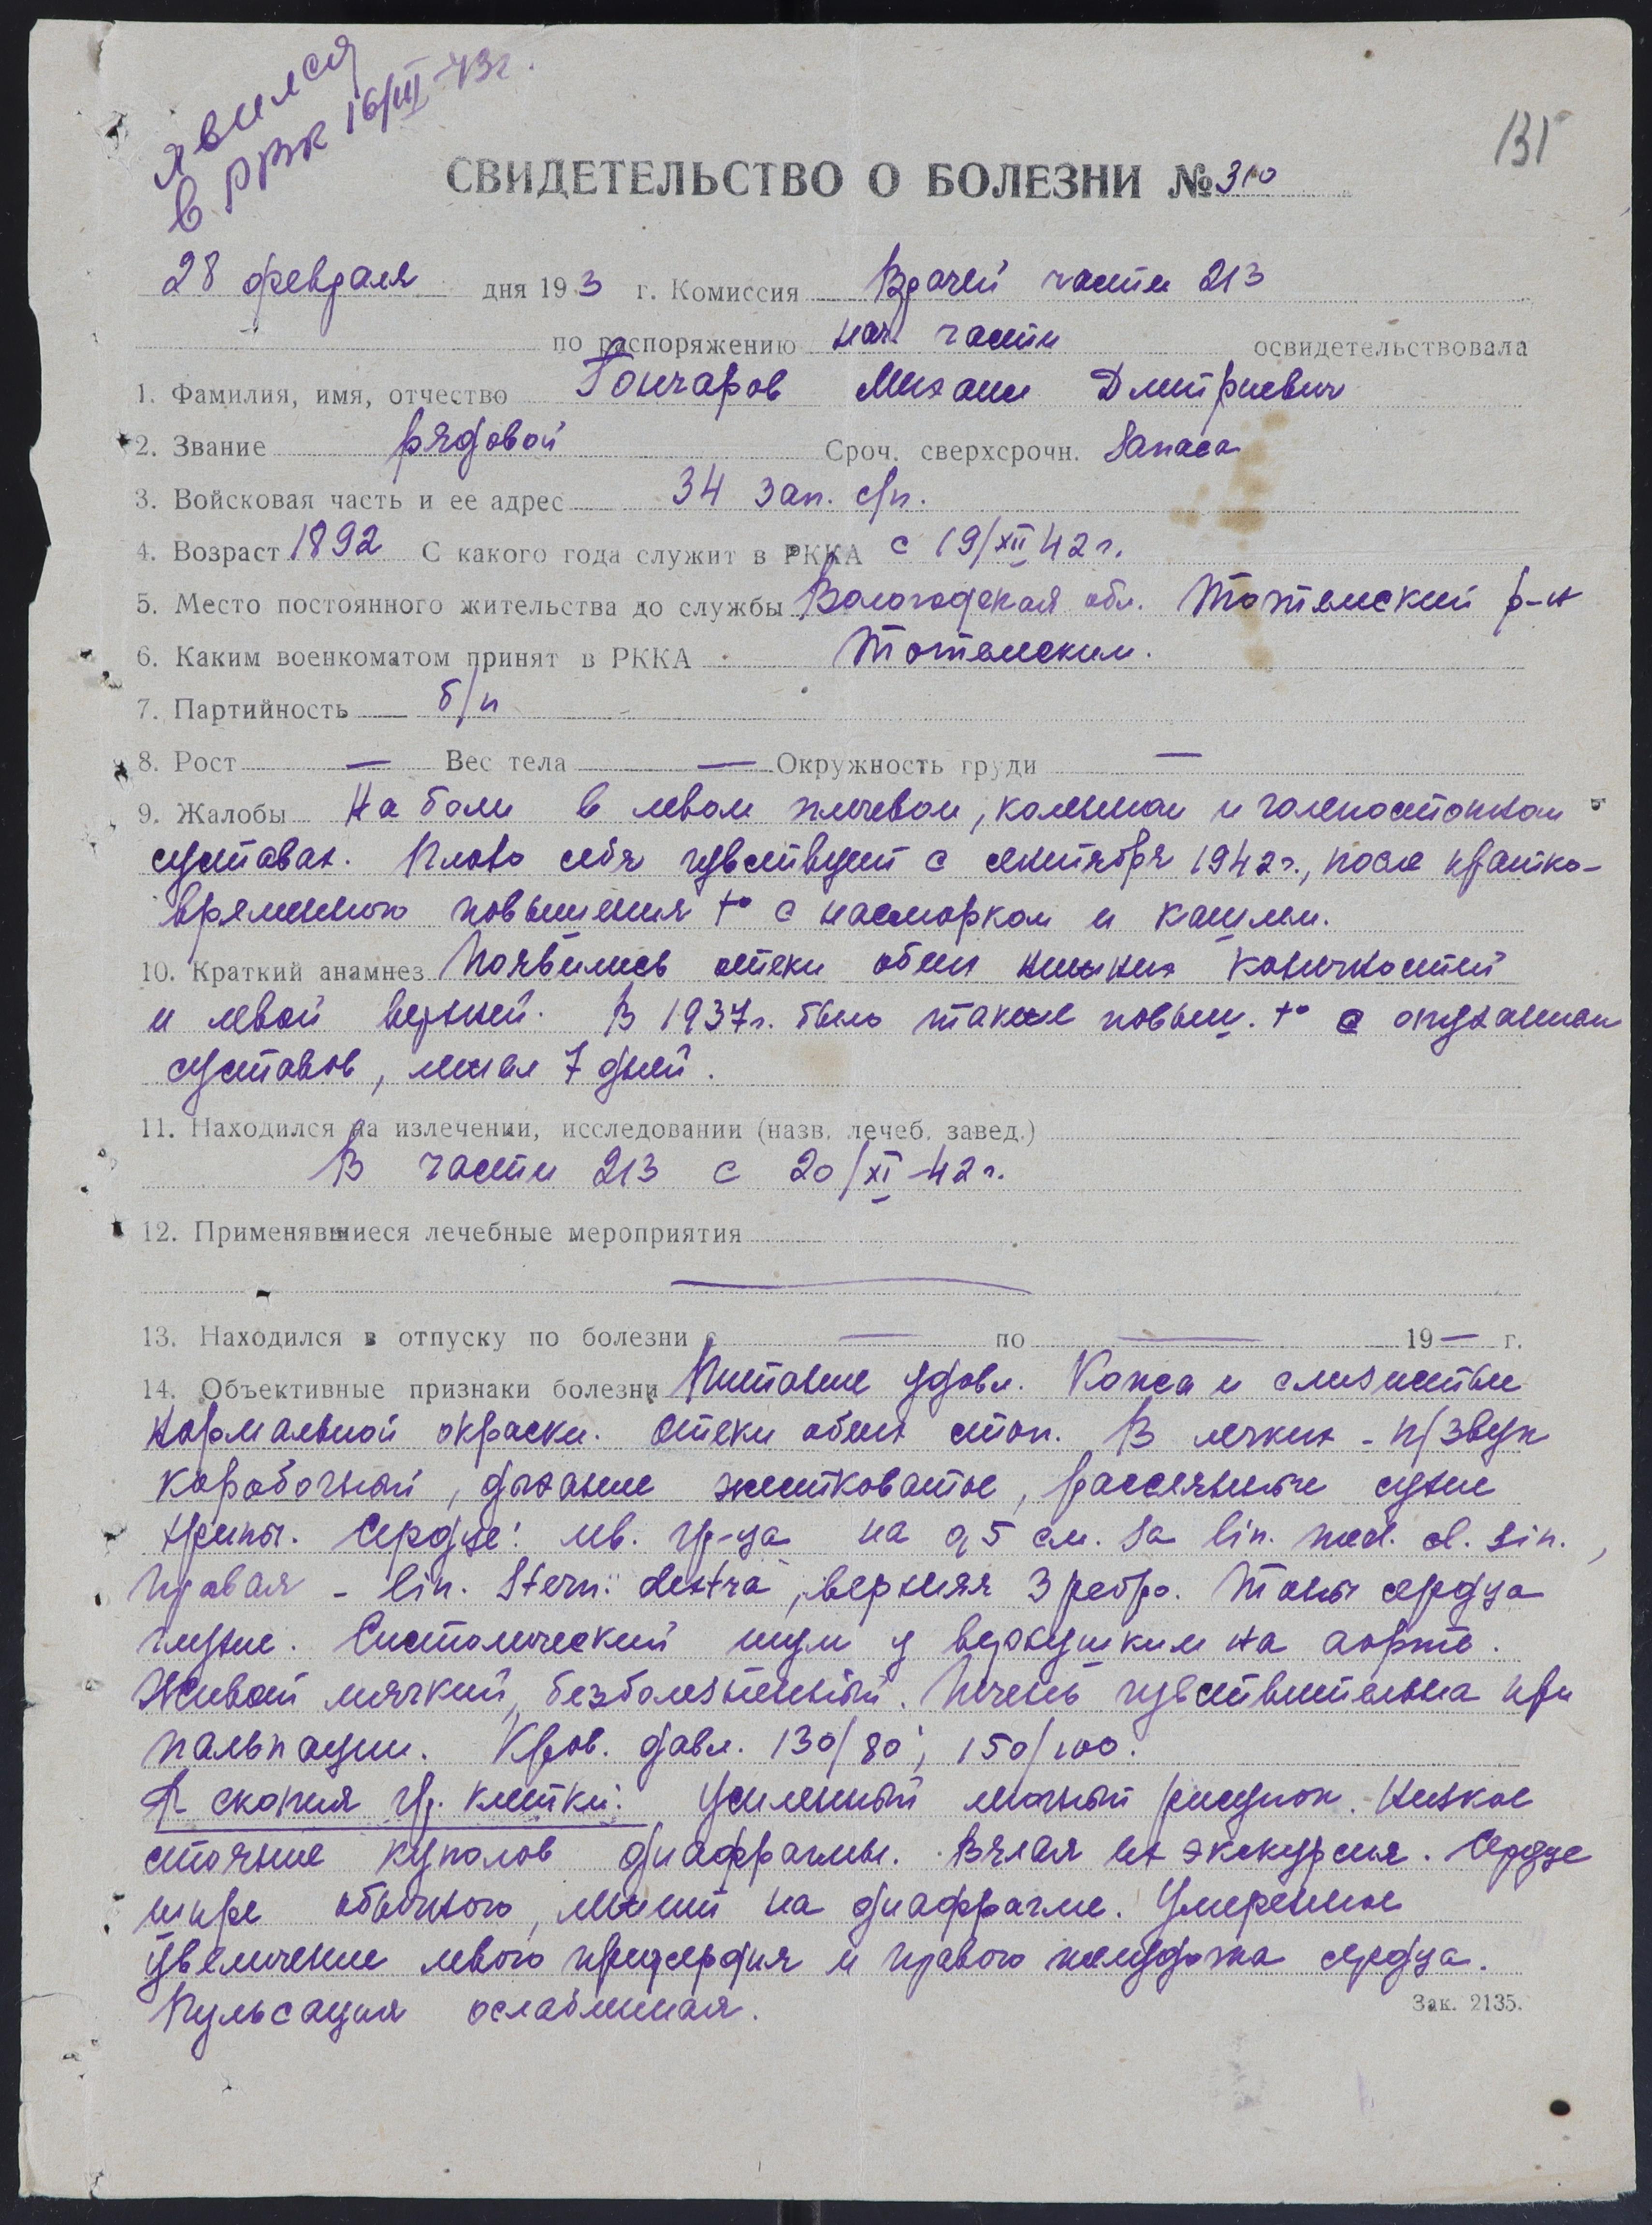 явился
в РВК 16/III-43г.
131
СВИДЕТЕЛЬСТВО О БОЛЕЗНИ №310
28 февраля дня 193 г. Комиссия Врачей части 213
по распоряжению нач. части освидетельствовала
1. Фамилия, имя, отчество Гончаров Михаил Дмитриевич
2. Звание рядовой Сроч. сверхсрочн. Запаса
3. Войсковая часть и ее адрес 34 зап. с/п.
4. Возраст 1892 С какого года служит в РККА с 19/XII 42 г.
5. Место постоянного жительства до службы Вологодская обл. Тотемский р-н
6. Каким военкоматом принят в РККА Тотемским.
7. Партийность б/п
8. Рост — Вес тела — Окружность груди —
9. Жалобы На боли в левом плечевом, коленном и голеностопном
суставах. Плохо себя чувствует с сентября 1942 г., после кратко-
временного повышения t° с насморком и кашлем.
10. Краткий анамнез Появились отеки обеих нижних конечностей
и левой верхней. В 1937 г. было также повыш. t° с опуханием
суставов, лежал 7 дней.
11. Находился на излечении, исследовании (назв. лечеб. завед.)
В части 213 с 20/XI-42 г.
12. Применявшиеся лечебные мероприятия
13. Находился в отпуску по болезни с — по — 19— г.
14. Объективные признаки болезни Питание удовл. Кожа и слизистые
нормальной окраски. Отеки обеих стоп. В легких - п/звук
коробочный, дыхание жестковатое, рассеянные сухие
хрипы. Сердце: лев. гр-ца на 0,5 см. за lin. med. cl. sin.,
правая - lin. Stern: dextra, верхняя 3 ребро. Тоны сердца
глухие. Систолический шум у верхушки и на аорте.
Живот мягкий, безболезненный. Печень чувствительна при
пальпации. Кров. давл. 130/80; 150/100.
R-скопия гр. клетки: Усиленный легочный рисунок. Низкое
стояние куполов диафрагмы. Вялая их экскурсия. Сердце
шире обычного, лежит на диафрагме. Умеренное
увеличение левого предсердия и правого желудочка сердца.
Пульсация ослабленная.
Зак. 2135.